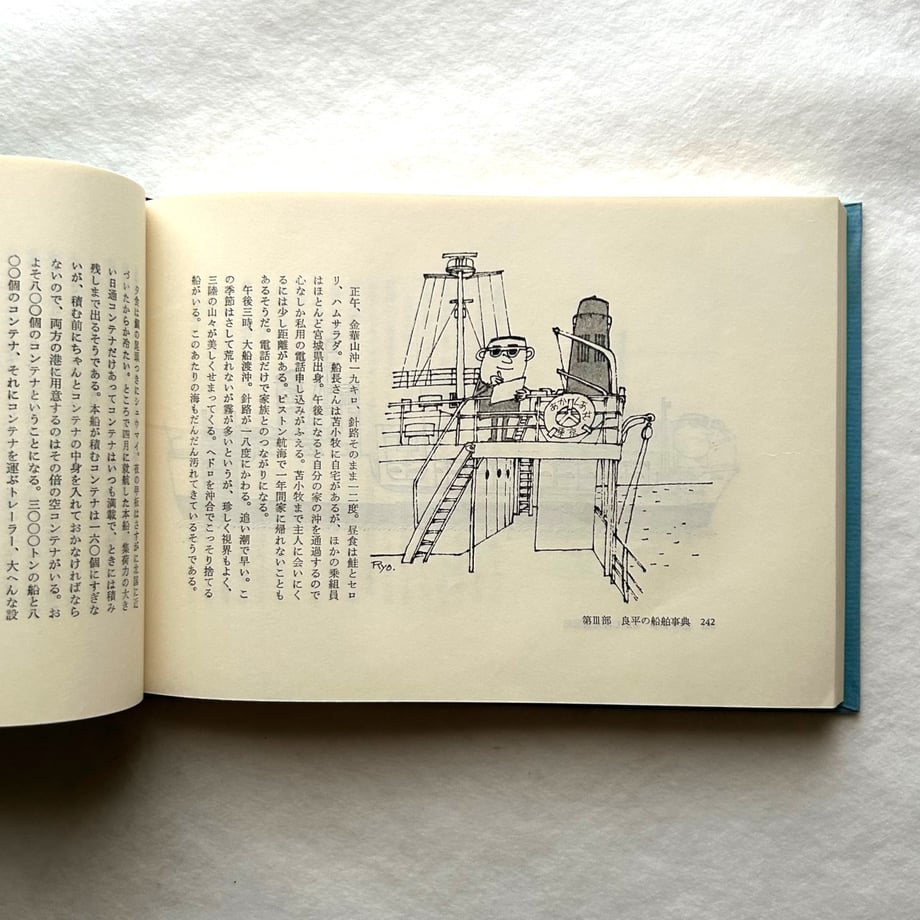 正午、金華山沖一九キロ、針路そのまま一二度。昼食は鮭とセロ
リ、ハムサラダ。船長さんは苫小牧に自宅があるが、ほかの乗組員
はほとんど宮城県出身。午後になると自分の家の沖を通過するので
心なしか私用の電話申し込みがふえる。苫小牧まで主人に会いにく
るには少し距離がある。ピストン航海で一年間家に帰れないことも
あるそうだ。電話だけで家族とのつながりになる。
午後三時、大船渡沖。針路が一八度にかわる。追い潮で早い。こ
の季節はさして荒れないが霧が多いというが、珍しく視界もよく、
三陸の山々が美しくせまってくる。ヘドロを沖合でこっそり捨てる
船がいる。このあたりの海もだんだん汚れてきているそうである。
Ryo.
第Ⅲ部 良平の船舶事典 242
づいたからか冷たい。ところで四月に就航した本船、集荷力の大き
い日通コンテナだけあってコンテナはいつも満載で、ときには積み
残しまで出るそうである。本船が積むコンテナは一六〇個にすぎな
いが、積む前にちゃんとコンテナの中身を入れておかなければなら
ないので、両方の港に用意するのはその倍の空コンテナがいる。お
よそ八〇〇個のコンテナということになる。三〇〇〇トンの船と八
〇〇個のコンテナ、それにコンテナを運ぶトレーラー、大へんな設